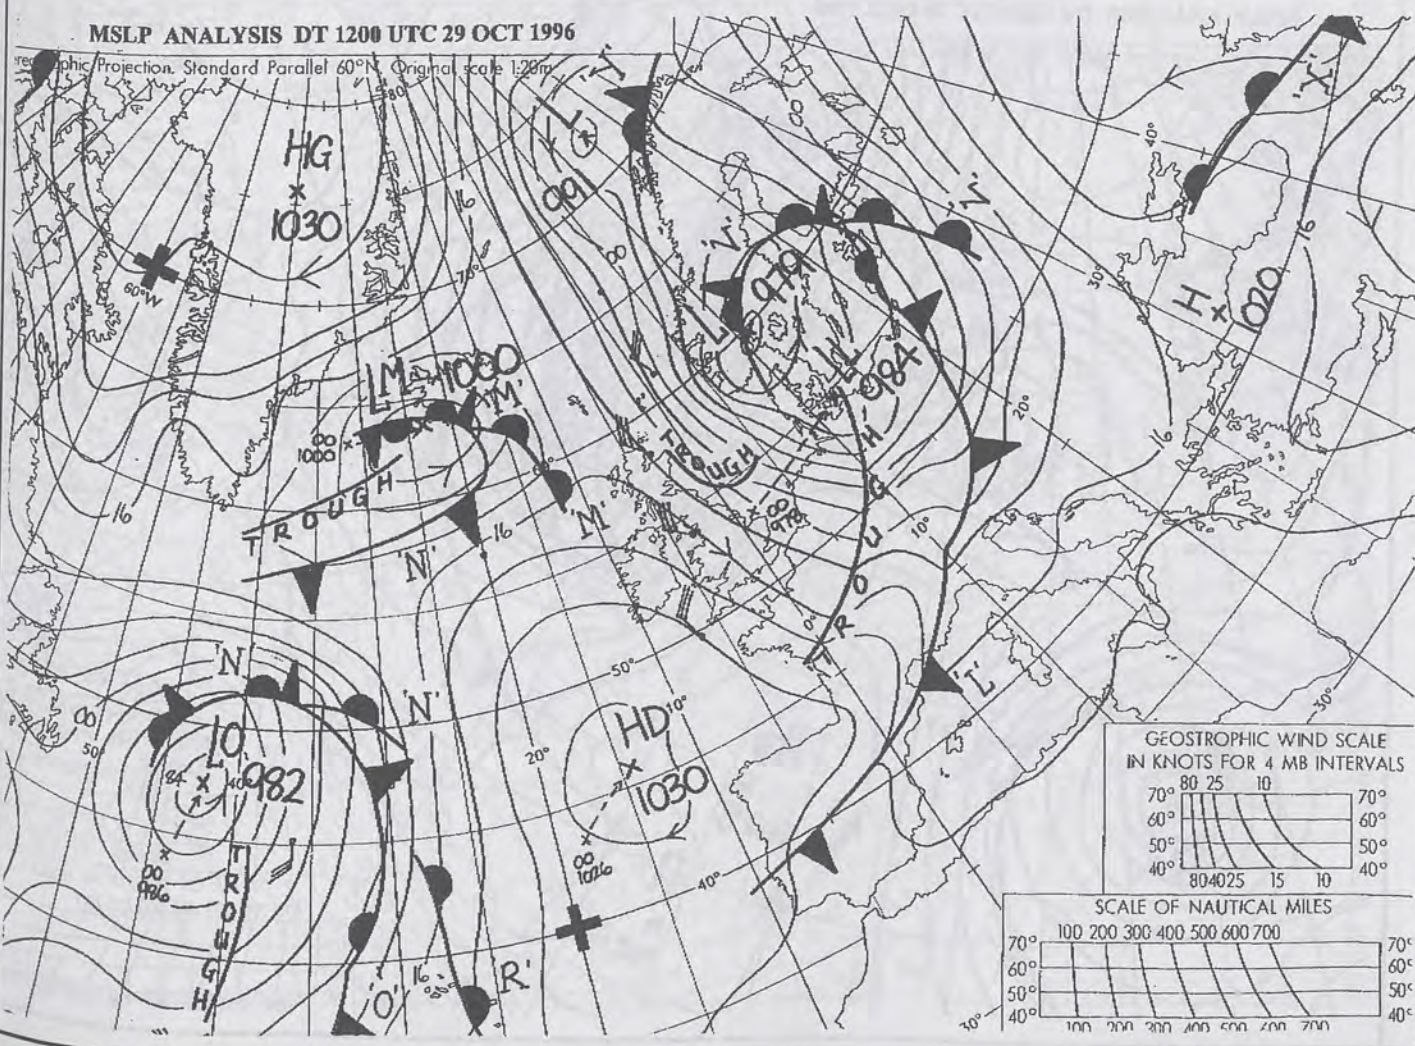 MSLP ANALYSIS DT 1200 UTC 29 OCT 1996
phic Projection. Standard Parallel 60°N. Original scale 1:20m
80°
HG
×
1030
60°W
L
991
'J'
16
70°
00
00
'V'
'V'
979
L
LL
984
'X'
40°
30°
16
H
1020
20°
16
LM 1000
'M'
00
1000
TROUGH
60°
'M'
16
'N'
16
TROUGH
00
978
TROUGH
10°
0°
'L'
30°
'N'
'N'
00
50°
LO
982
84
40°
00
986
TROUGH
'O'
16
R'
50°
10°
20°
HD
×
1030
00
1026
40°
30°
GEOSTROPHIC WIND SCALE
IN KNOTS FOR 4 MB INTERVALS
80 25 10
70° 70°
60° 60°
50° 50°
40° 40°
80 40 25 15 10
SCALE OF NAUTICAL MILES
100 200 300 400 500 600 700
70° 70°
60° 60°
50° 50°
40° 40°
100 200 300 400 500 600 700